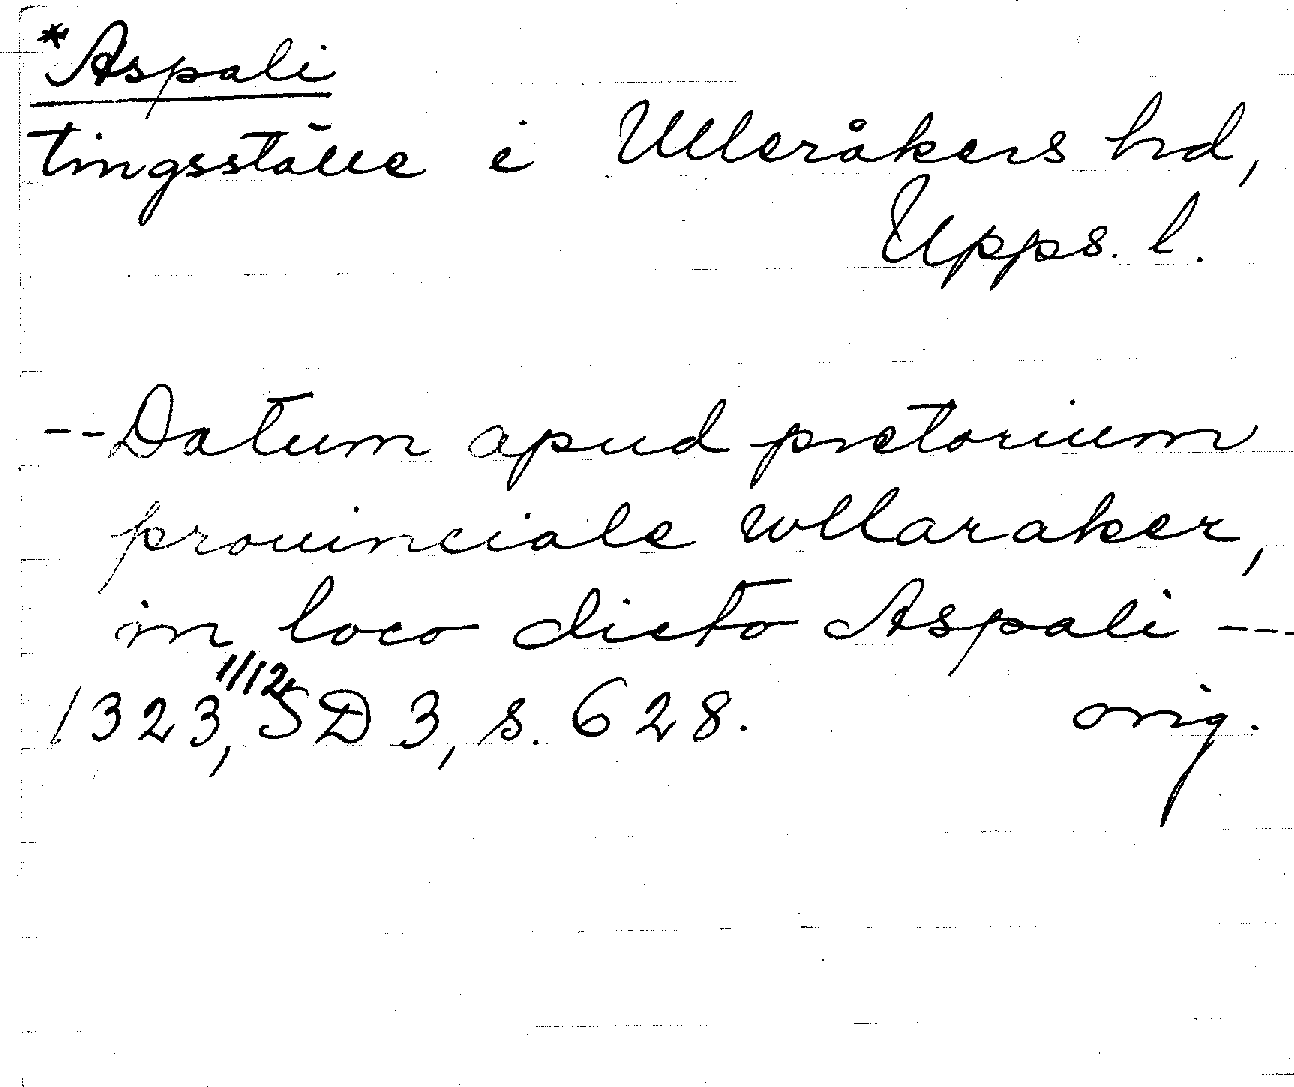 *Aspali
tingsställe i Ulleråkers hd,
Upps. l.
-- Datum apud pretorium
prouinciale wllaraker,
in loco dicto Aspali ---
1323, 1/12, SD 3, s. 628. orig.